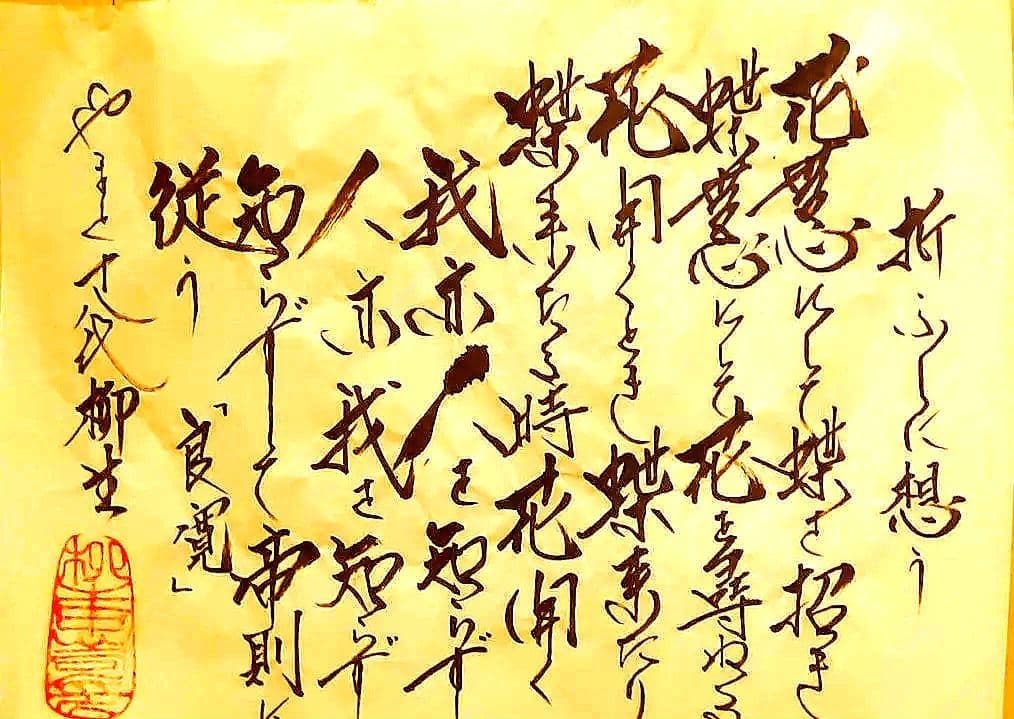 折ふしに想う
花無心にして蝶を招き
蝶無心にして花を尋ぬる
花開くとき蝶来たり
蝶来たる時花開く
我亦人を知らず
人亦我を知らず
知らずして帝則に
従う
「良寛」
やまと 柳生